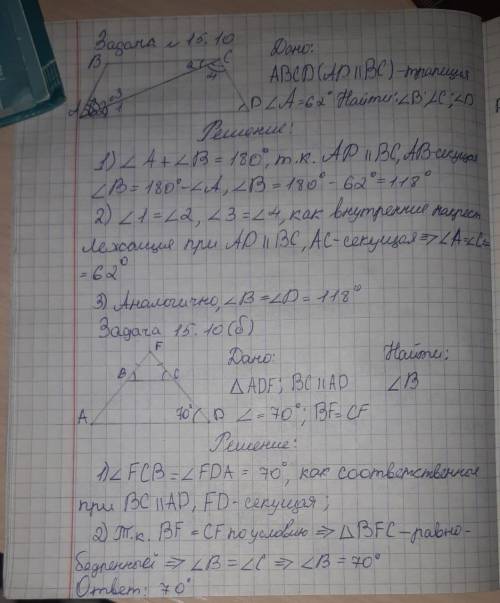 Задача № 15.10
B
C
2
4
A
3
1
D
Дано:
ABCD (AD || BC) - трапеция
∠A = 62° Найти: ∠B; ∠C; ∠D
Решение:
1) ∠A + ∠B = 180°, т.к. AD || BC, AB-секущая
∠B = 180° - ∠A, ∠B = 180° - 62° = 118°
2) ∠1 = ∠2, ∠3 = ∠4, как внутренние накрест
лежащие при AD || BC, AC - секущая ⇒ ∠A = ∠C =
= 62°
3) Аналогично, ∠B = ∠D = 118°
Задача 15.10 (б)
F
B
C
A
70°
D
Дано:
Найти:
△ADF; BC || AD
∠B
∠ = 70°; BF = CF
Решение:
1) ∠FCB = ∠FDA = 70°, как соответственные
при BC || AD, FD - секущая;
2) Т.к. BF = CF по условию ⇒ △BFC - равно-
бедренный ⇒ ∠B = ∠C ⇒ ∠B = 70°
Ответ: 70°